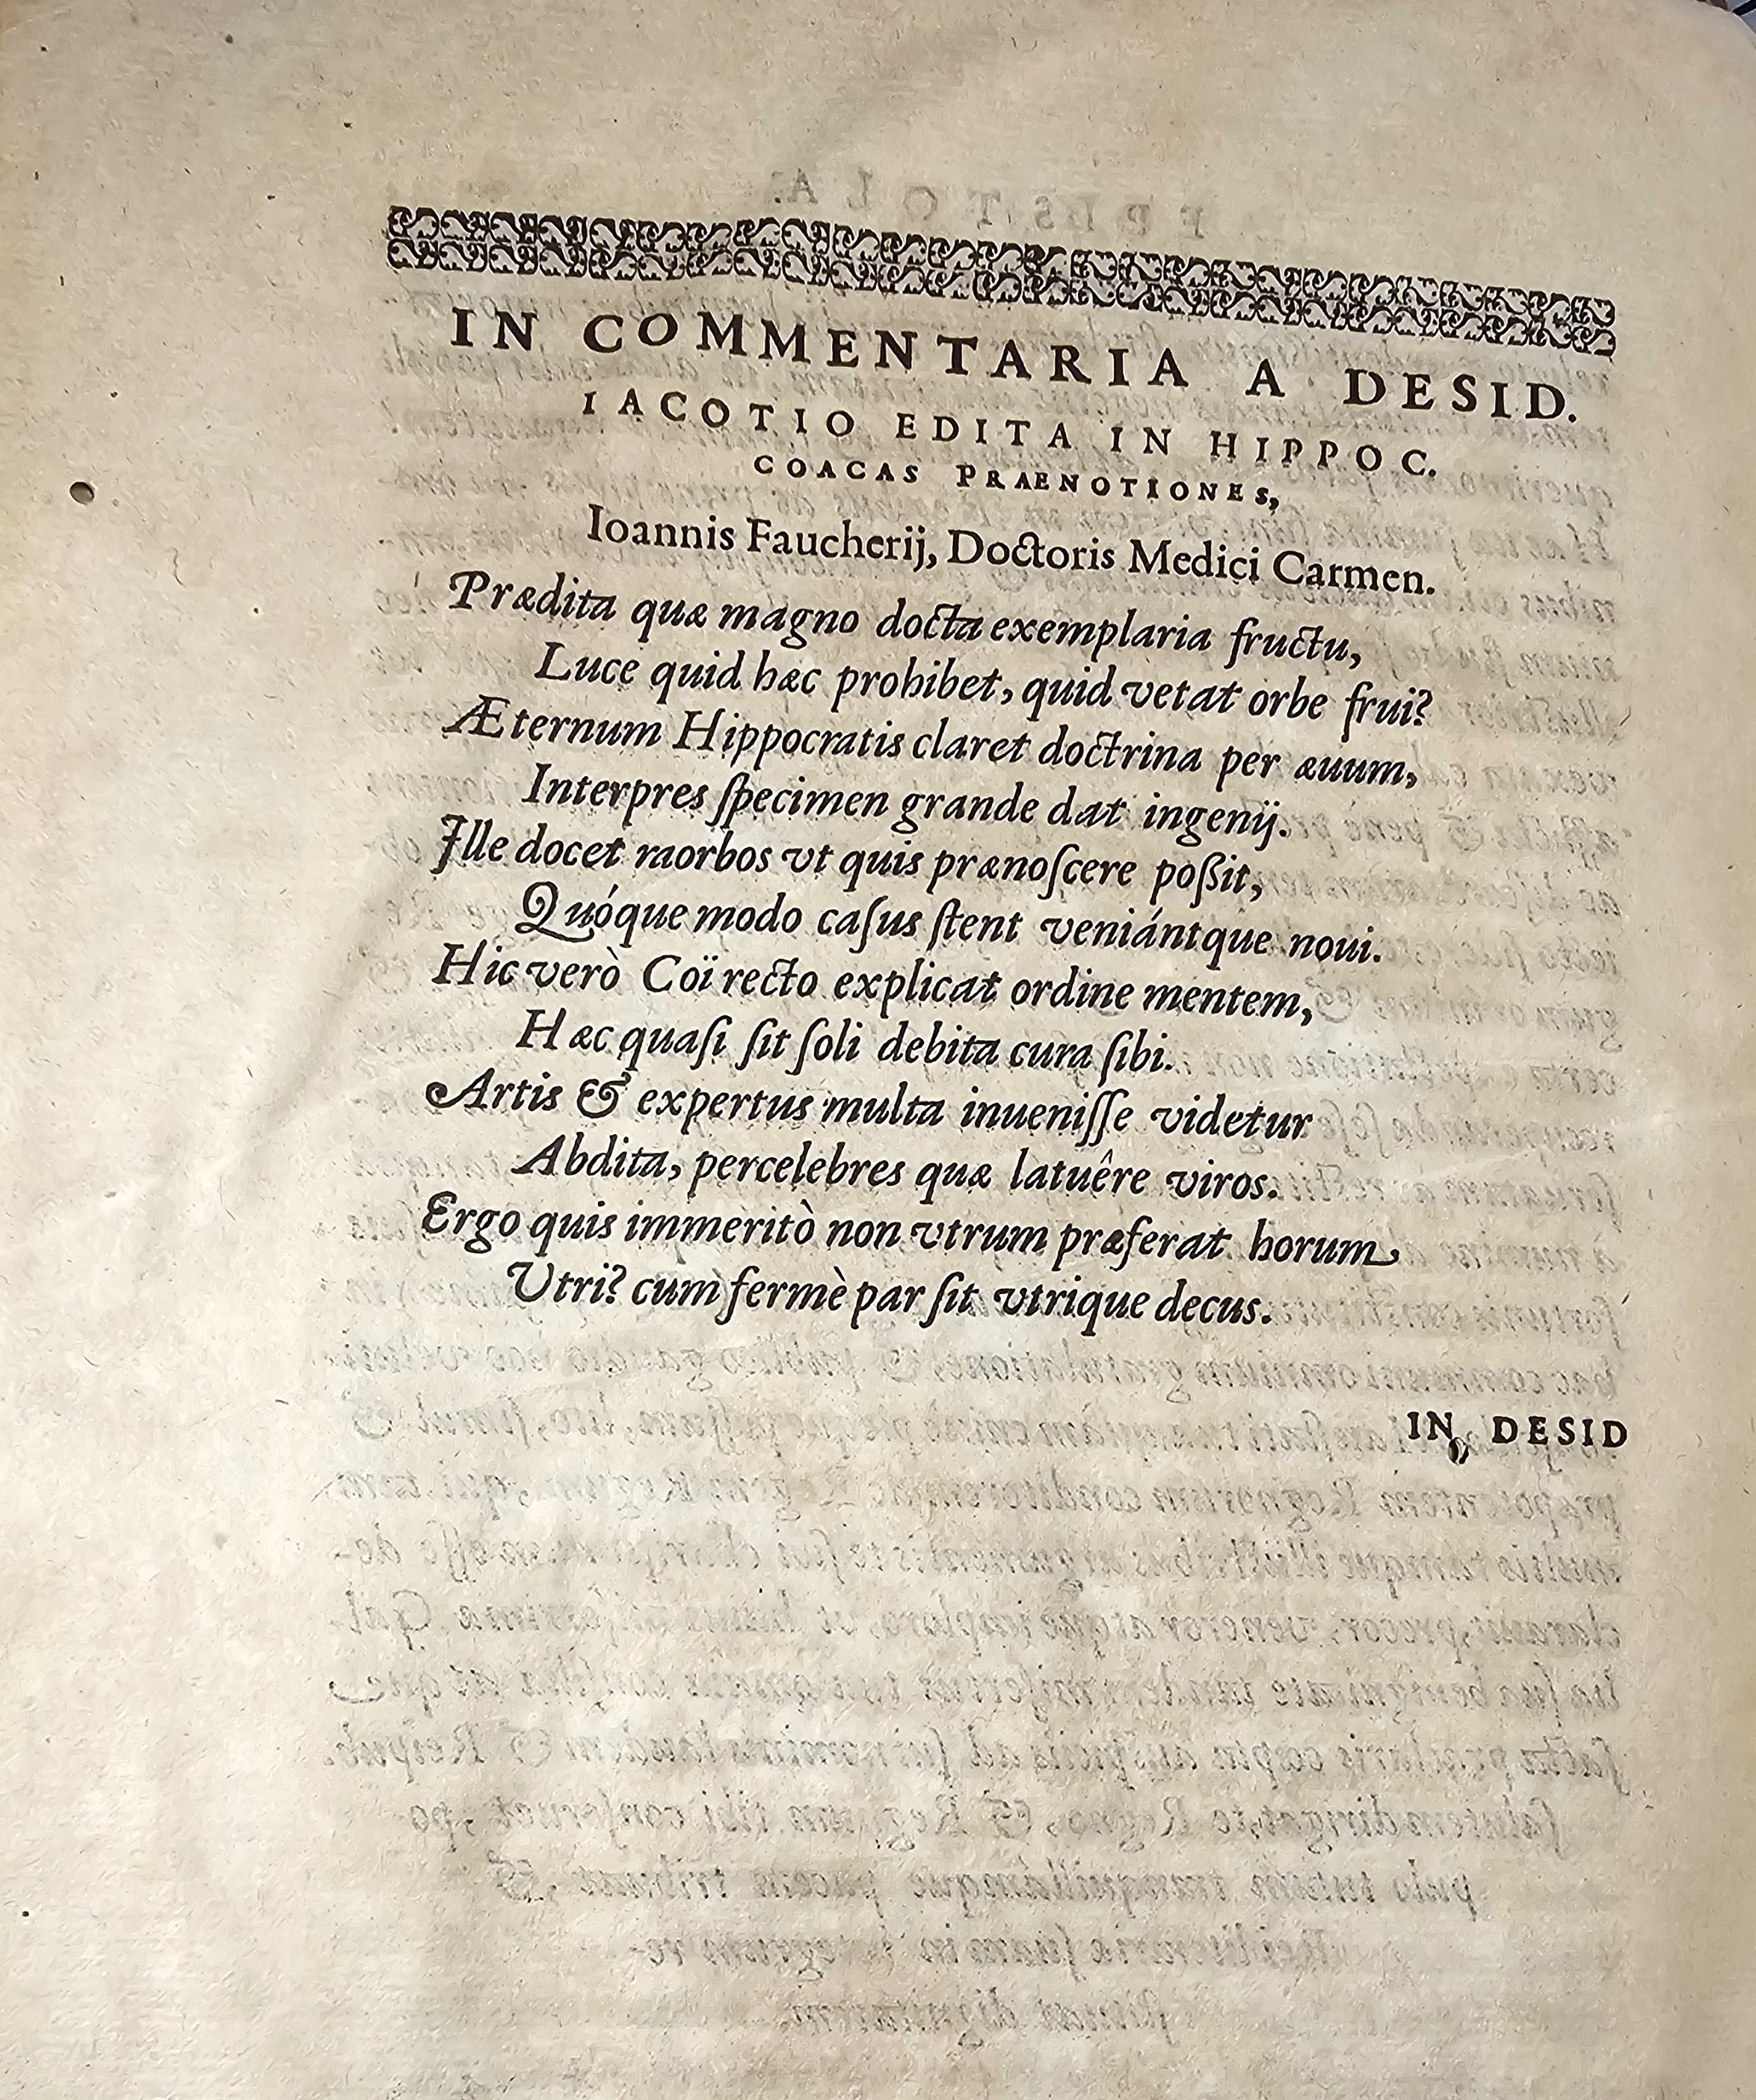 IN COMMENTARIA A DESID.
IACOTIO EDITA IN HIPPOC.
COACAS PRAENOTIONES,
Ioannis Faucherij, Doctoris Medici Carmen.
Prædita quæ magno docta exemplaria fructu,
Luce quid hæc prohibet, quid vetat orbe frui?
Æternum Hippocratis claret doctrina per æuum,
Interpres ſpecimen grande dat ingenij.
Ille docet morbos vt quis prænoſcere poßit,
Quóque modo caſus ſtent veniántque noui.
Hic verò Coï recto explicat ordine mentem,
Hæc quaſi ſit ſoli debita cura ſibi.
Artis & expertus multa inueniſſe videtur
Abdita, percelebres quæ latuêre viros.
Ergo quis immeritò non vtrum præferat horum
Vtri? cum fermè par ſit vtrique decus.
IN DESID